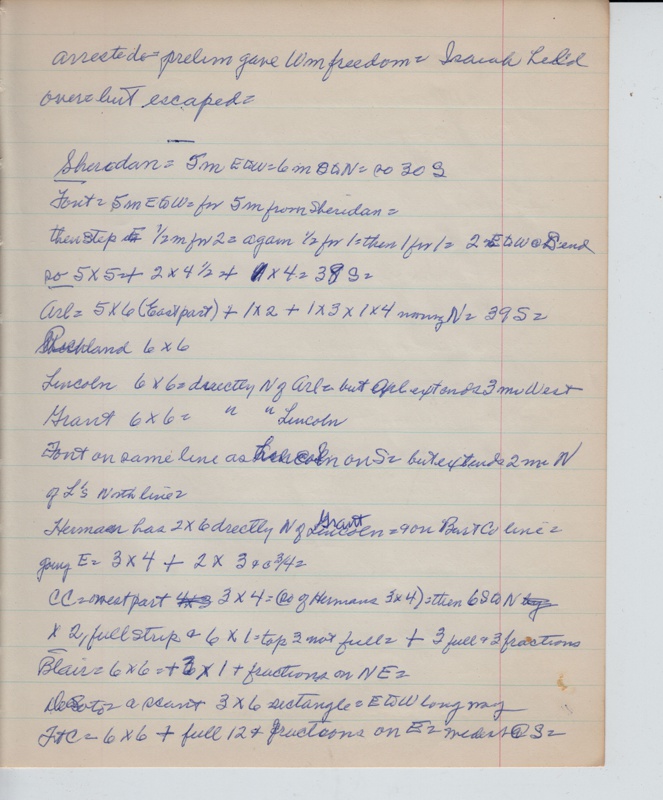 arrested = prelim gave Wm freedom = Isaiah held
over = but escaped =
Sheridan = 5 m E & W = 6 m S & N = so 30 S
Font = 5 m E & W = for 5 m from Sheridan =
then step ½ m for 2 = again ½ for 1 = then 1 for 1 = 2 E & W @ S end
so 5 X 5 + 2 X 4 ½ + 1 X 4 = 38 S =
Arl = 5 X 6 (East part) + 1 X 2 + 1 X 3 X 1 X 4 N = 39 S =
Richland 6 X 6
Lincoln 6 X 6 = directly N of Arl = but Arl extends 3 mi West
Grant 6 X 6 = " " Lincoln
Font on same line as Lincoln on S = but extends 2 mi N
of L's North line =
Herman has 2 X 6 directly N of Grant = & on Burt Co line =
going E = 3 X 4 + 2 X 3 & 3/4 =
CC = west part 3 X 4 = (@ E of Hermans 3 X 4) = then 6 S & N
X 2, full strip & 6 X 1 = top 3 not full = + 3 full & 3 fractions
Blair = 6 X 6 = + 3 X 1 + fractions on NE =
DeSoto a scant 3 X 6 rectangle = E & W long way
Ft C = 6 X 6 + full 12 + fractions on E = widest @ S =